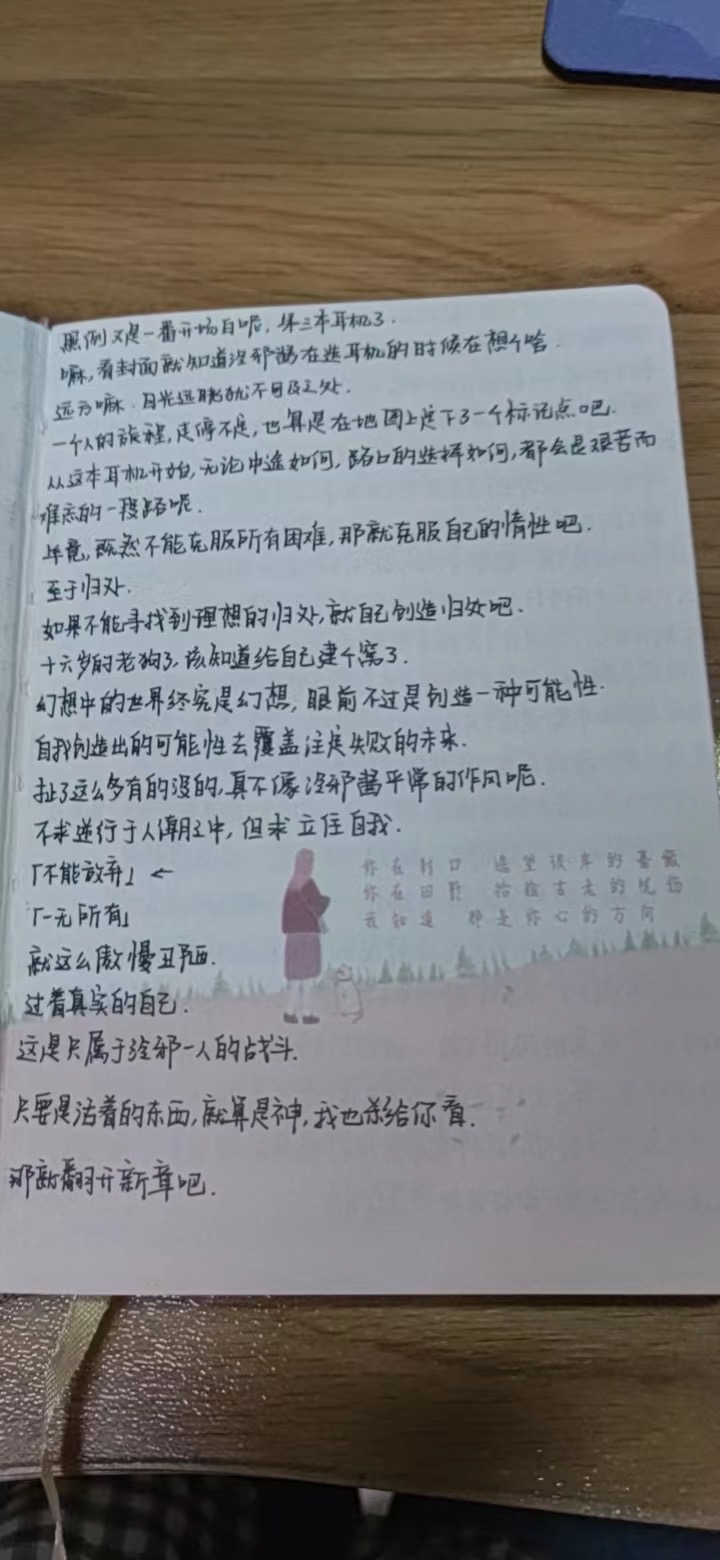 照例又是一番开场白呢，第三本耳机了.
嘛，看封面就知道泠邪酱在选耳机的时候在想个啥.
远方嘛.目光远眺犹不可及之处.
一个人的旅程，走停不定，也算是在地图上定下了一个标记点吧.
从这本耳机开始，无论中途如何，路上的选择如何，都会是艰苦而
难忘的一段路呢.
毕竟，既然不能克服所有困难，那就克服自己的惰性吧.
至于归处.
如果不能寻找到理想的归处，就自己创造归处吧.
十六岁的老狗了，该知道给自己建个窝了.
幻想中的世界终究是幻想，眼前不过是创造一种可能性.
自我创造出的可能性去覆盖注定失败的未来.
扯了这么多有的没的，真不像泠邪酱平常的作风呢.
不求逆行于人潮之中，但求立住自我.
「不能放弃」←
「一无所有」
就这么傲慢
过着真实的自己.
这是只属于泠邪一人的战斗.
只要是活着的东西，就算是神，我也杀给你看.
那就翻开新章吧.
你在 遥望彼岸的蔷薇
你在田野 拾捡古老的忧伤
我知道 那是你心的方向